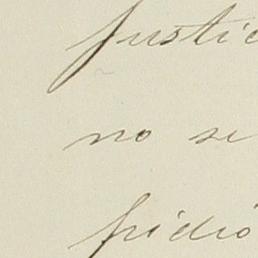 justic
no se
pidió